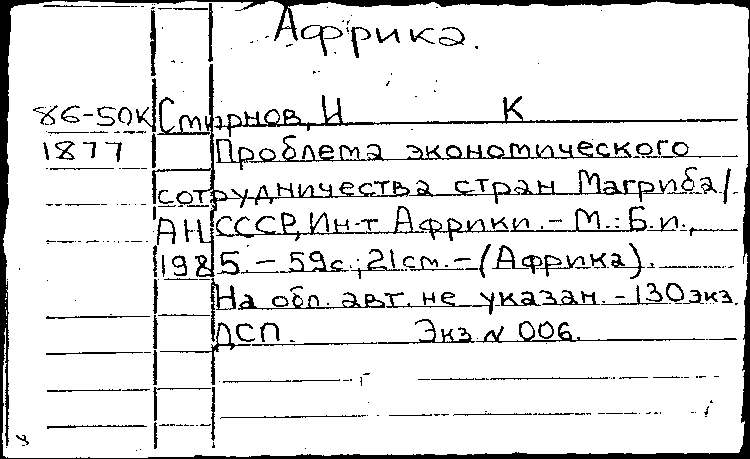 Африка.
86-50К Смирнов, И К
1877 Проблема экономического
сотрудничества стран Магриба/
АН СССР, Ин-т Африки. - М.: Б.и.,
1985. - 59с.; 21см. - (Африка).
На обл. авт. не указан. - 130экз.
ДСП. Экз N 006.